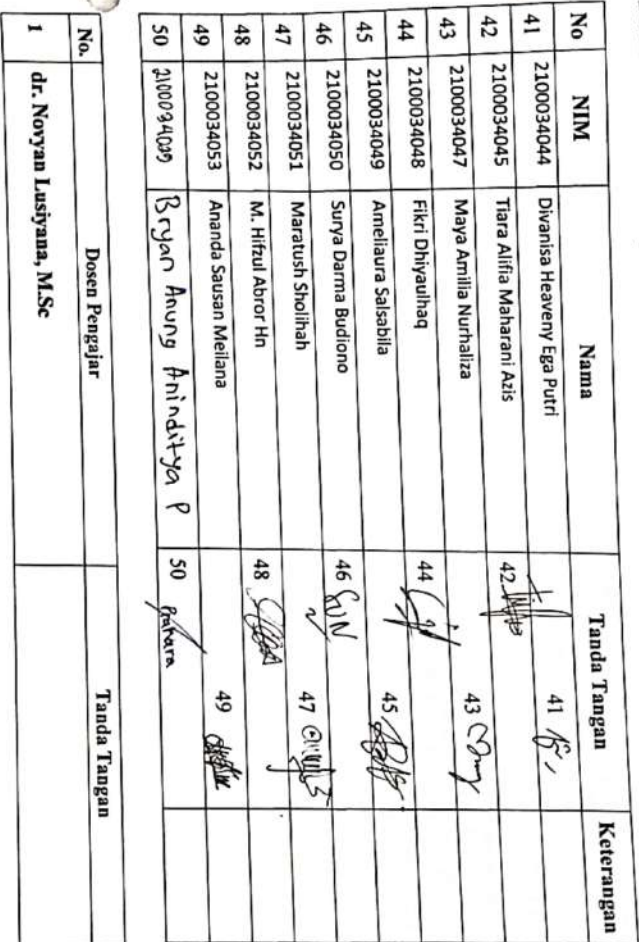 No NIM Nama Tanda Tangan Keterangan
41 2100034044 Divanisa Heaveny Ega Putri 41
42 2100034045 Tiara Alifia Maharani Azis 42
43 2100034047 Maya Amilia Nurhaliza 43
44 2100034048 Fikri Dhiyaulhaq 44
45 2100034049 Ameliaura Salsabila 45
46 2100034050 Surya Darma Budiono 46
47 2100034051 Maratush Sholihah 47
48 2100034052 M. Hifzul Abror Hn 48
49 2100034053 Ananda Sausan Meilana 49
50 Bryan Anung Anindítya P 50 Prahara
No. Dosen Pengajar Tanda Tangan
1 dr. Novyan Lusiyana, M.Sc